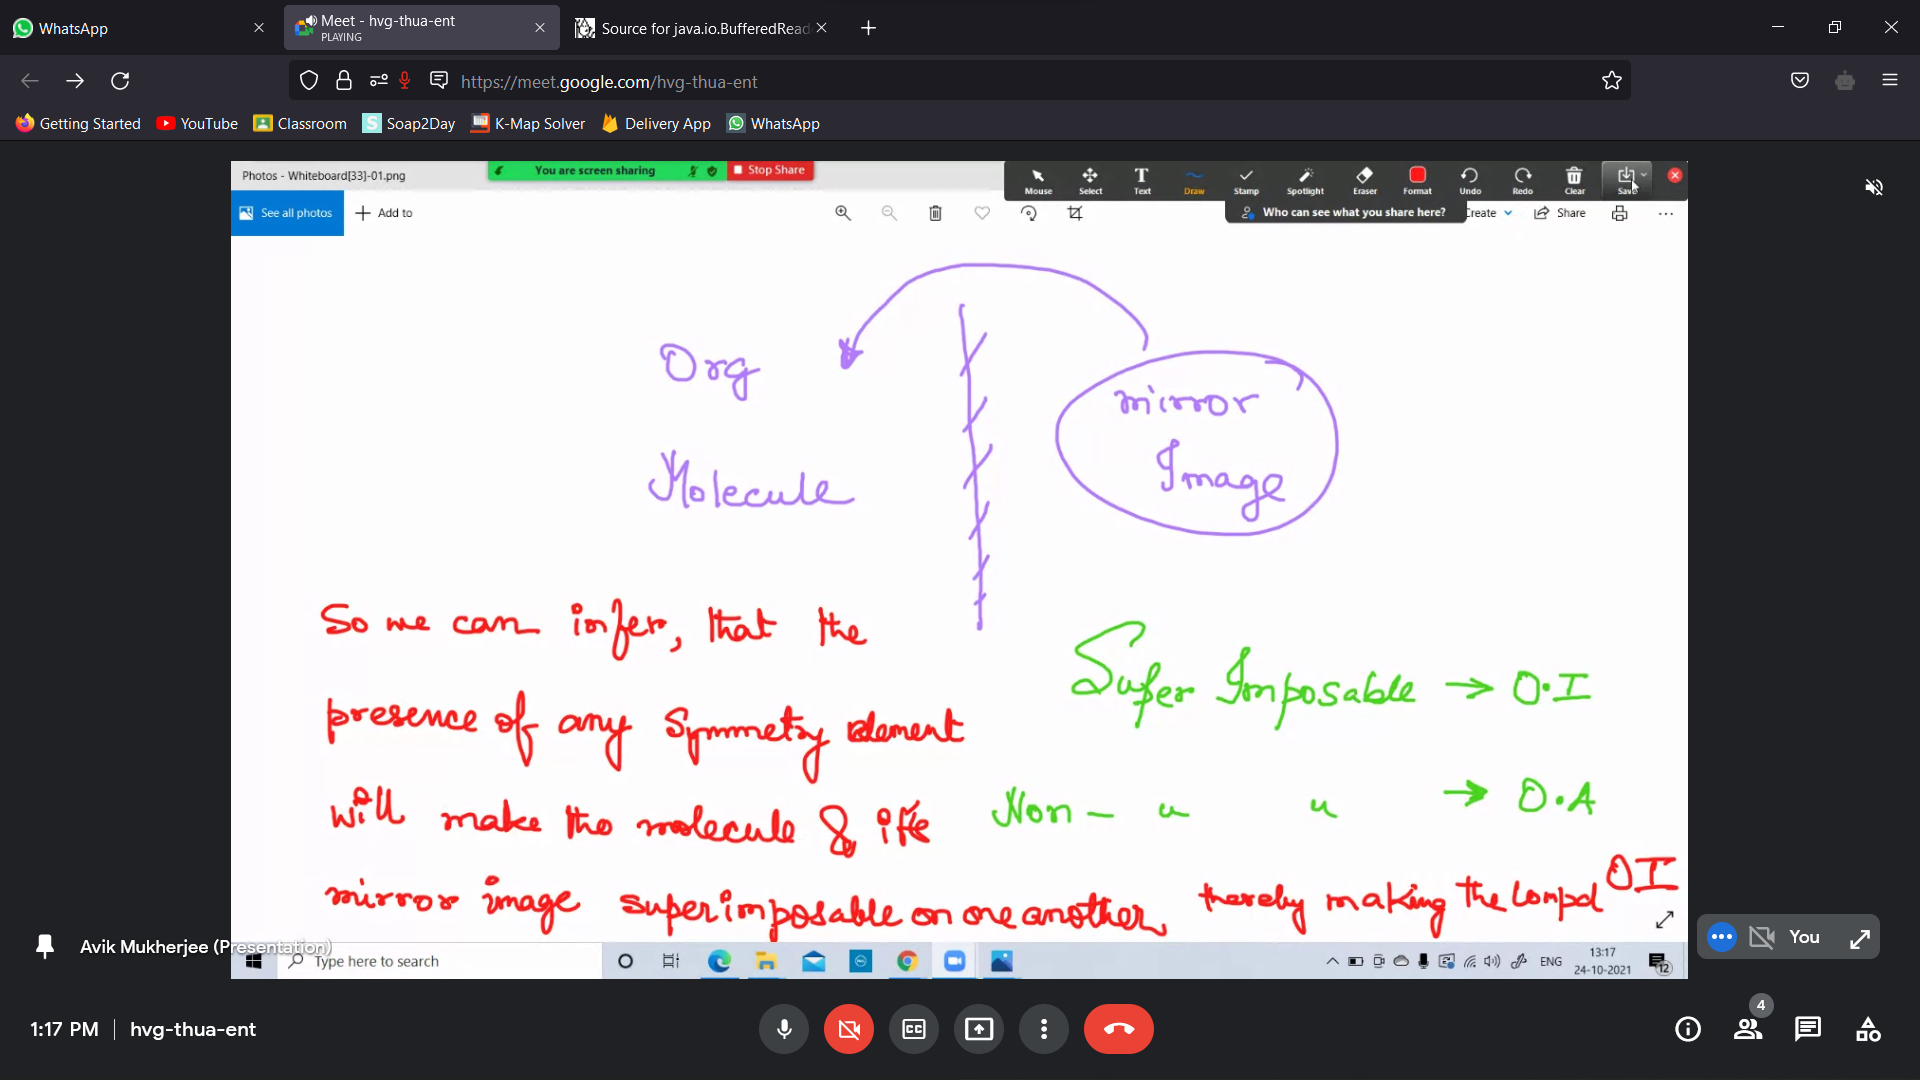 WhatsApp
Meet - hvg-thua-ent
PLAYING
Source for java.io.BufferedRead
https://meet.google.com/hvg-thua-ent
Getting Started YouTube Classroom Soap2Day K-Map Solver Delivery App WhatsApp
Photos - Whiteboard[33]-01.png
You are screen sharing Stop Share
Mouse Select Text Draw Stamp Spotlight Eraser Format Undo Redo Clear Save
See all photos Add to
Who can see what you share here? Create Share
Org
Molecule
mirror
Image
So we can infer, that the
presence of any Symmetry element
will make the molecule & its
mirror image superimposable on one another, thereby making the Compd OI
Super Imposable → O.I
Non - " " → O.A
Avik Mukherjee (Presentation)
You
Type here to search
ENG
13:17
24-10-2021
12
1:17 PM hvg-thua-ent
CC
4